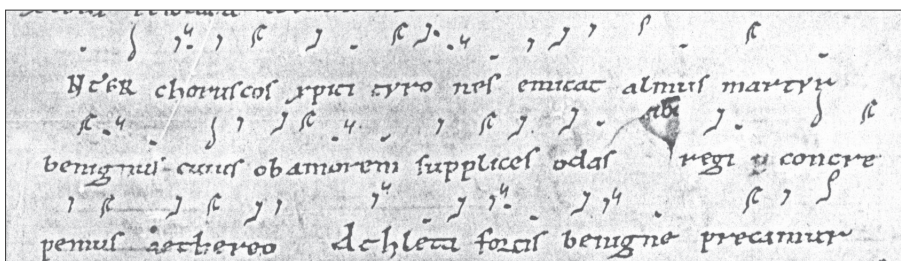 NTER choruscos xpiti tyro nes emicat almus martyr
benignus cuius obamorem supplices odas sibi regi concre
pemus aethereo Athleta fortis benigne precamur